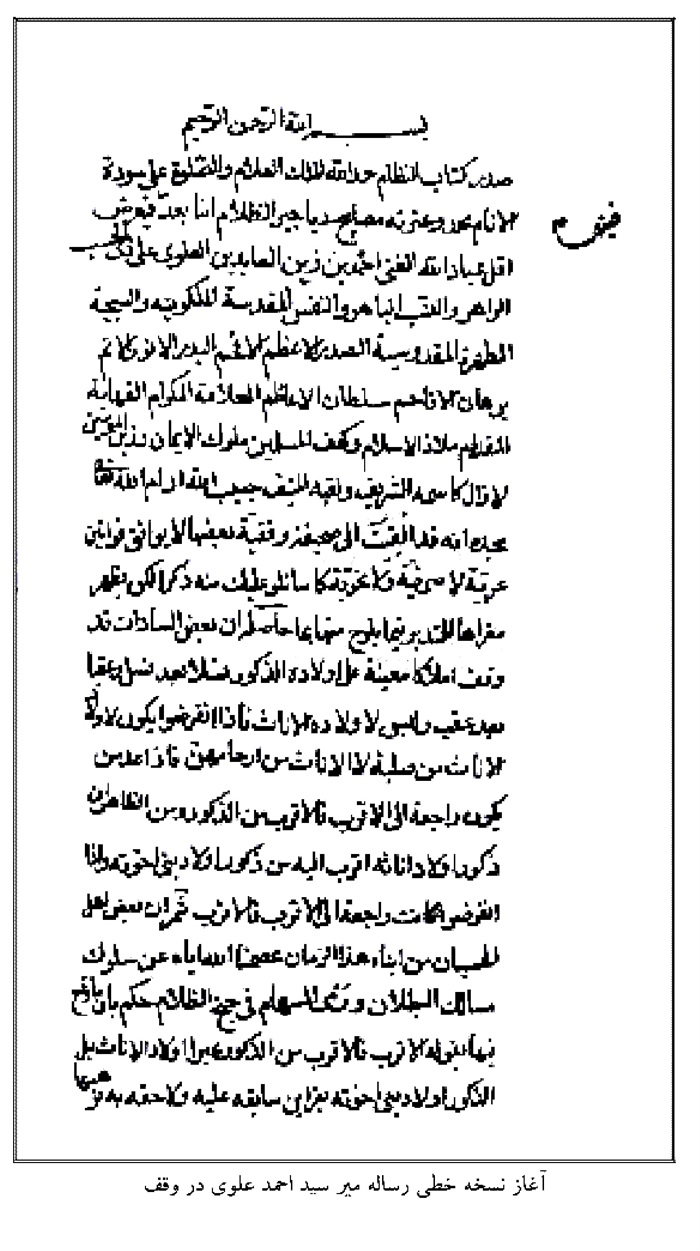 بسم الله الرحمن الرحيم
صدر كتاب النظام حمد الله الملك العلام والصلوة على سيدة
الانام محمد وعترته مصابيح دياجير الظلام اما بعد فيعرض
اقل عباد الله الغنى احمد بن زين العابدين العلوى على
الزاهر والقلب الباهر والنفس المقدسة الملكوتيه والسجية
المطهرة القدوسية الصدر الاعظم الافخم البدر الانور الاتم
برهان الاعاظم سلطان الاعاظم العلامة المكرام الفهامة
المقدام ملاذ الاسلام وكهف المسلمين ملوك الايمان وزين المؤمنين
لازال كاسمه الشريف ولقبه المنيف حبيب الله ادام الله تعالى
مجده انه قد القيت الى صحيفة وقفية بعضها لا يوافق قوانين
عربية لا صرفية ولا نحوية كما سنتلو عليك منه ذكرا لكن يظهر
مغزاها للمتدبر فيما يلوح منها بما حاصله ان بعض السادات قد
وقف املاكا معينة على اولاده الذكور نسلا بعد نسل وعقبا
بعد عقب وليس لاولاده الاناث فاذا انقرضوا يكون لاولاده
الاناث من صلبه لا الاناث من ارحامهن فاذا عدمن
يكون راجعة الى الاقرب فالاقرب من الذكور ومن الظاهر ان
ذكور اولاد اناثه اقرب اليه من ذكور اولاد بنى اخوته واذا
انقرضوا كانت راجعة الى الاقرب فالاقرب ثم ان بعض اهل
الحسبان من ابناء هذا الزمان عصمنا الله اياه عن سلوك
مسالك البطلان ورمى السهام فى جنح الظلام حكم بان
فيها بقوله الاقرب فالاقرب من الذكور غير اولاد الاناث بل
الذكور اولاد بنى اخوته بقراين سابقه عليه ولاحقه به
آغاز نسخه خطی رساله میر سید احمد علوی در وقف